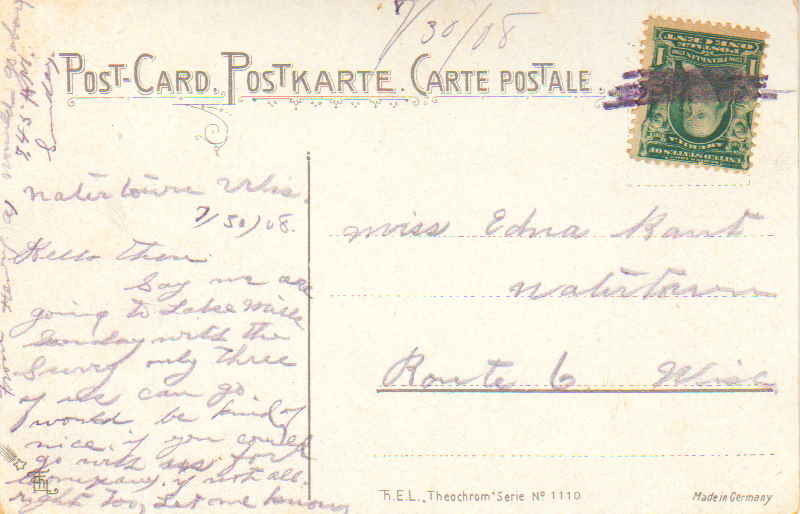 7/30/08
POST-CARD. POSTKARTE. CARTE POSTALE.
UNITED STATES OF AMERICA
Watertown Wis.
7/30/08.
Hello There
Say we are
going to Lake Mills
Sunday with the
Surrey only three
of us can go
would be kind of
nice if you could
go with us for
Company, if not all
right too, Let me know
from Henry
we would go about
745 A.M.
Sunday
Miss Edna Kant
Watertown
Route 6 Wisc.
Th.E.L. „Theochrom" Serie No 1110
Made in Germany